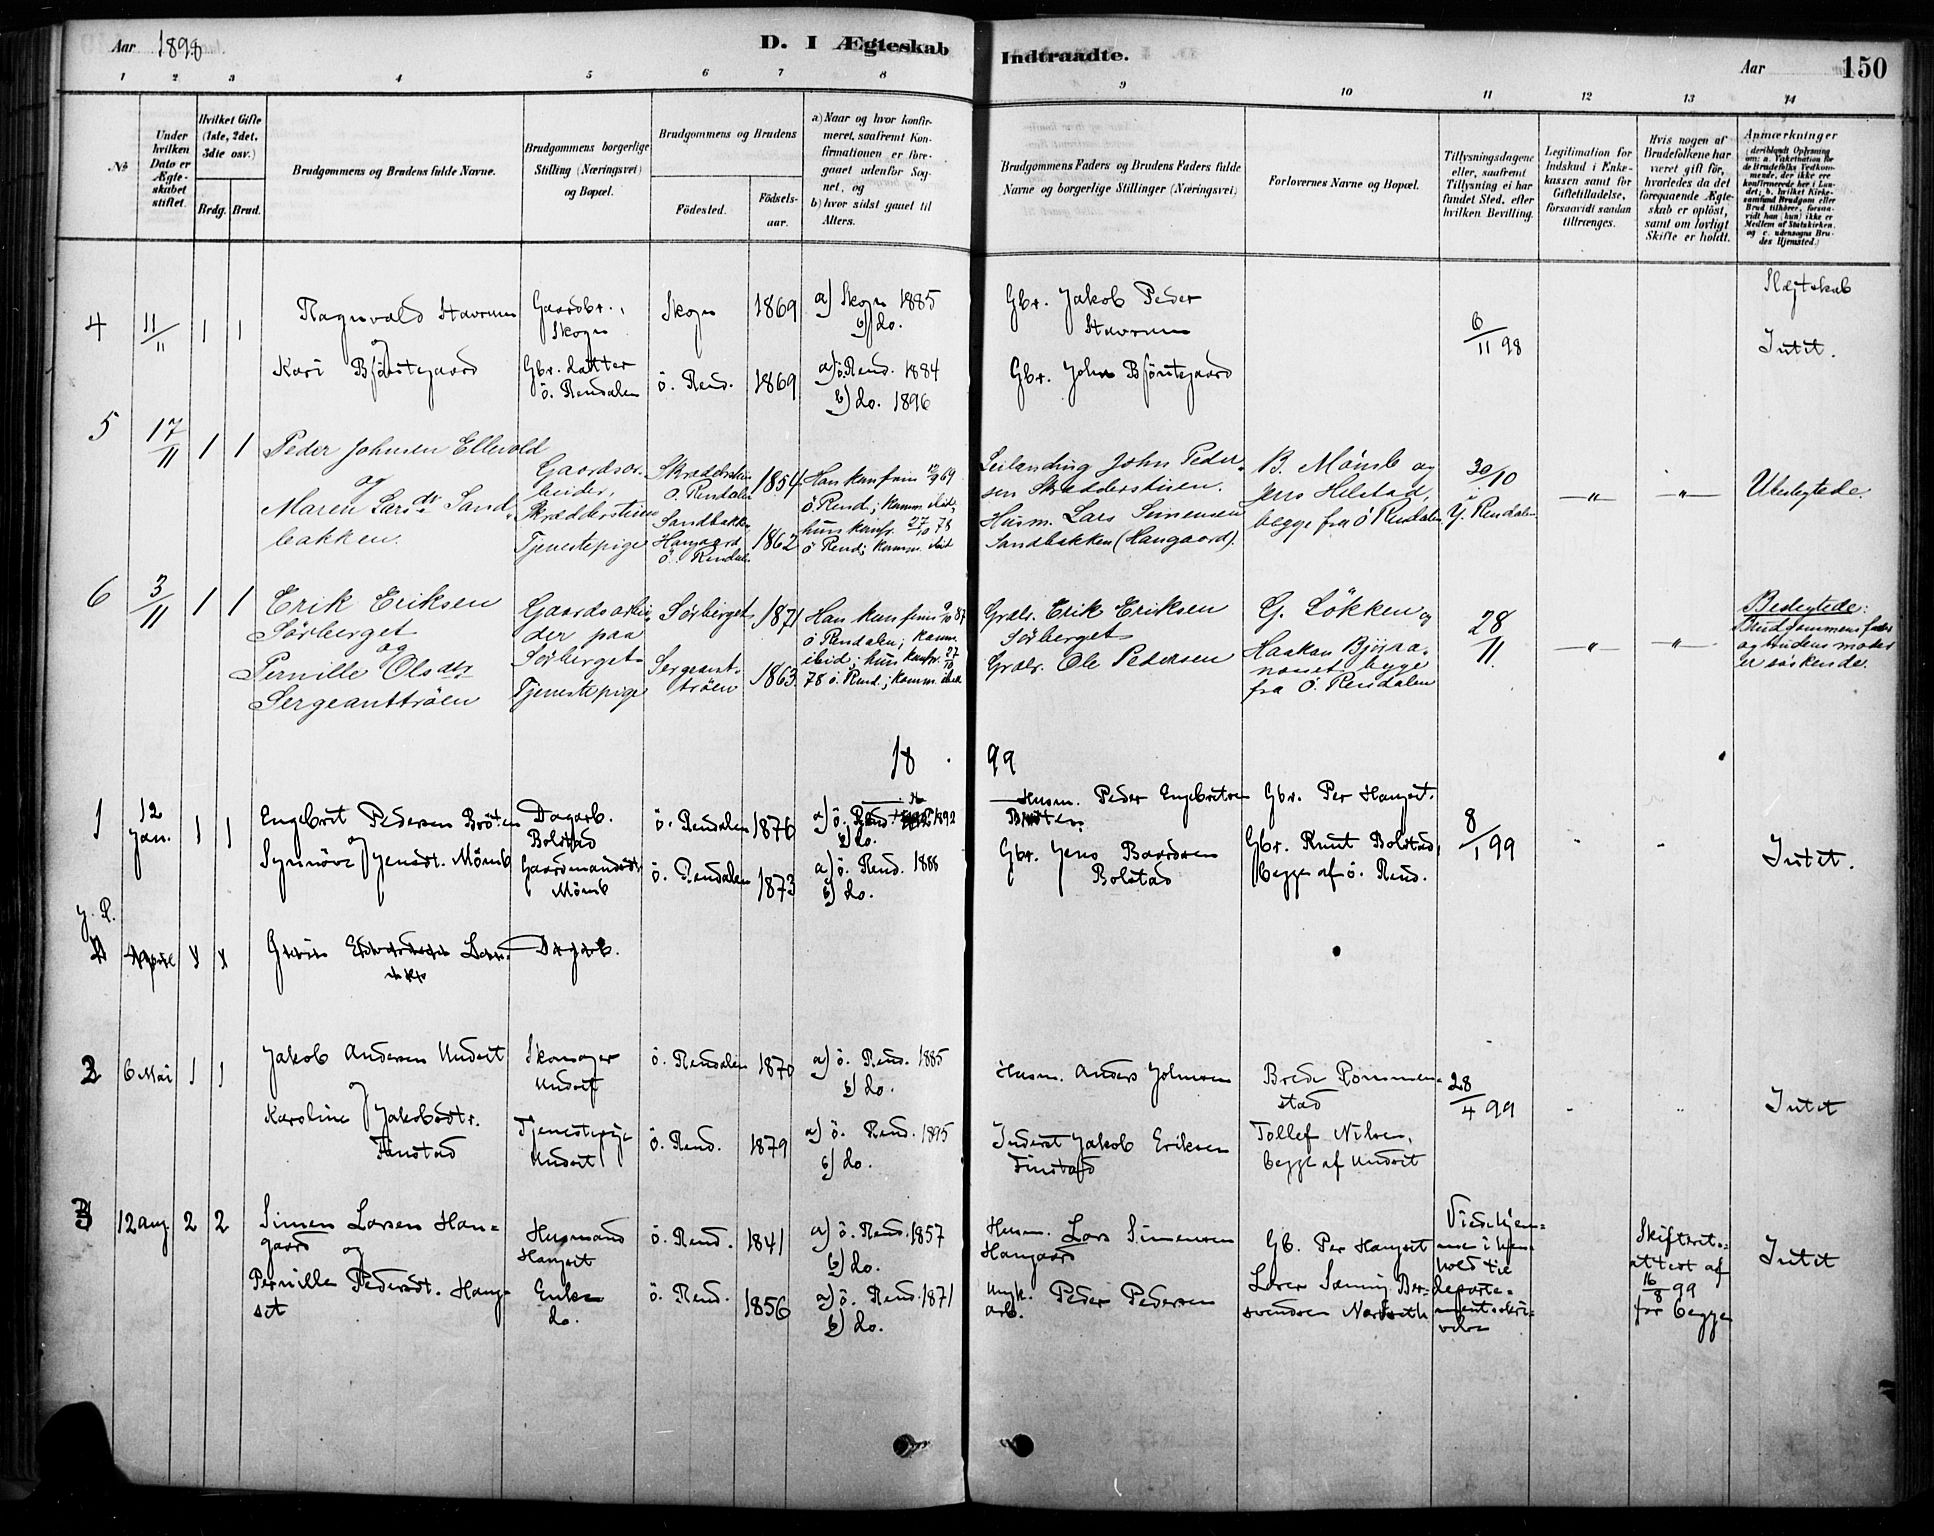 Aar 1898.
D. I Ægteskab Indtraadte.
Aar 150
1 2 3 4 5 6 7 8 9 10 11 12 13 14
No
Under hvilken Dato er Ægteskabet stiftet.
Hvilket Gifte (1ste, 2det, 3die osv.)
Brdg. Brud.
Brudgommens og Brudens fulde Navne.
Brudgommens borgerlige Stilling (Næringsvei) og Bopæl.
Brudgommens og Brudens
Fødested.
Fødselsaar.
a) Naar og hvor konfirmeret, saafremt Konfirmationen er foregaaet udenfor Sognet, og
b) hvor sidst gaaet til Alters.
Brudgommens Faders og Brudens Faders fulde Navne og borgerlige Stillinger (Næringsvei)
Forlovernes Navne og Bopæl.
Tillysningsdagene eller, saafremt Tillysning ei har fundet Sted, efter hvilken Bevilling.
Legitimation for Indskud i Enkekassen samt for Giftetilladelse, forsaavidt saadan tiltrænges.
Hvis nogen af Brudefolkene har været gift før, hvorledes da det foregaaende Ægteskab er opløst, samt om lovligt Skifte er holdt.
Anmærkninger (deriblandt Oplysning om: a. Vakcination for de Brudefolks Vedkommende, der ikke ere konfirmerede her i Landet; b. hvilket Kirkesamfund Brudgom eller Brud tilhører, forsaavidt han (hun) ikke er Medlem af Statskirken, og c. udensogns Brudes Hjemsted.)
4 11/11 1 1
Ragnvald Stavrum
og
Kari Bjöntegaard
Gaardbr., Skogn
Gbr. datter ö. Rendalen
Skogn 1869
ö. Rend. 1869
a) Skogn 1885
b) do.
a) ö Rend. 1884
b) do. 1896
Gbr. Jakob Peder Stavrum
Gbr. John Bjöntegaard
6/11 98
Slegtskab
Intet.
5 17/11 1 1
Peder Johnsen Ellevold
og
Maren Larsdtr Sandbakken.
Gaardsarbeider, Skrædderstuen
Tjenestepige
Skrædderstuen Ö. Rendalen 1854
Sandbakken Hangaard Ö. Rendalen 1862
Han konfirm 69
ö Rend.; komm. ibid;
hun konfr. 27/10 78
ö Rend; komm. ibid
Leilending John Pedersen Skrædderstuen.
Husm. Lars Simensen Sandbakken (Hangaard).
B. Mömb og Jens Helstad, begge fra ö Rendalen
30/10
Y. Rendalen
Ubeslegtede.
6 3/11 1 1
Erik Eriksen Sörberget
og
Pernille Olsdtr Sergeanttröen
Gaardsarbeider paa Sörberget
Tjenestepige
Sörberget 1871
Sergeanttröen 1863
Han konfirm 9/10 87
Ö Rendalen; komm. ibid; hun konfr. 27/10
78 ö. Rend.; komm. ibid
Grdbr. Erik Eriksen Sörberget
Grdbr. Ole Pedersen
G. Lökken og
Haakon Björnaneset begge fra Ö. Rendalen
28/11.
Beslegtede:
Brudgommens fader og brudens moder er søskende.
1899
1 12 Jan. 1 1
Engebret Pedersen Bröten
og
Synnöve Jensdt. Mömb
Dagarb. Bolstad
Gaardmandsdt. Mömb
ö. Rendalen 1876
ö. Rendalen 1873
a) ö. Rend. 1892
b) do.
a) ö. Rend. 1888
b) do.
Husm. Peder Engebretsen Bröten
Gbr. Jens Baardsen Bolstad
Gbr. Per Hangset.
Gbr. Knut Bolstad, begge af ö. Rend.
8/1 99
Intet.
y. R.
Dagarb.
2 6 Mai 1 1
Jakob Andersen Undset
og
Karoline Jakobsdtr. Finstad
Skomager Undset
Tjenestepige Undset
ö. Rendalen 1870
ö. Rend. 1879
a) ö. Rend. 1885
b) do.
a) ö. Rend. 1895
b) do.
Husm. Anders Johnsen
Inderst Jakob Eriksen Finstad
Brede Rommenstad
Tollef Nilsen, begge af Undset
28/4 99
Intet
3 12 Aug 2 2
Simen Larsen Hangaard
og
Pernille Pedersdt. Hangset
Husmand Hangset
Enke do.
ö. Rend. 1841
ö. Rend. 1856
a) ö. Rend. 1857
b) do.
a) ö. Rend. 1871
b) do.
Husm. Lars Simensen Hangaard
arb. Peder Pedersen
Gb. Per Hangset
Lærer Sæming
i henhold til departementsskrivelse
Skifteretsattest af 16/8 99 for begge
Intet